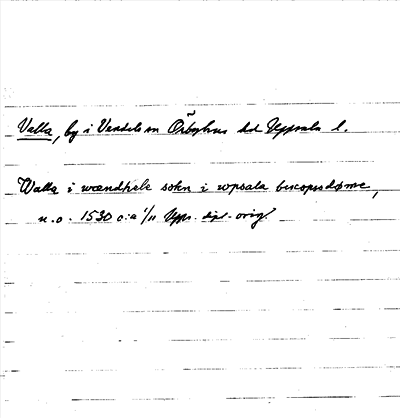 Valla, by i Vendels sn Örbyhus hd Uppsala l.
Walla i wændhele sokn i wpsala biscopsdøme,
u.o. 1530 o:a 1/11 Upps. dipl. orig.